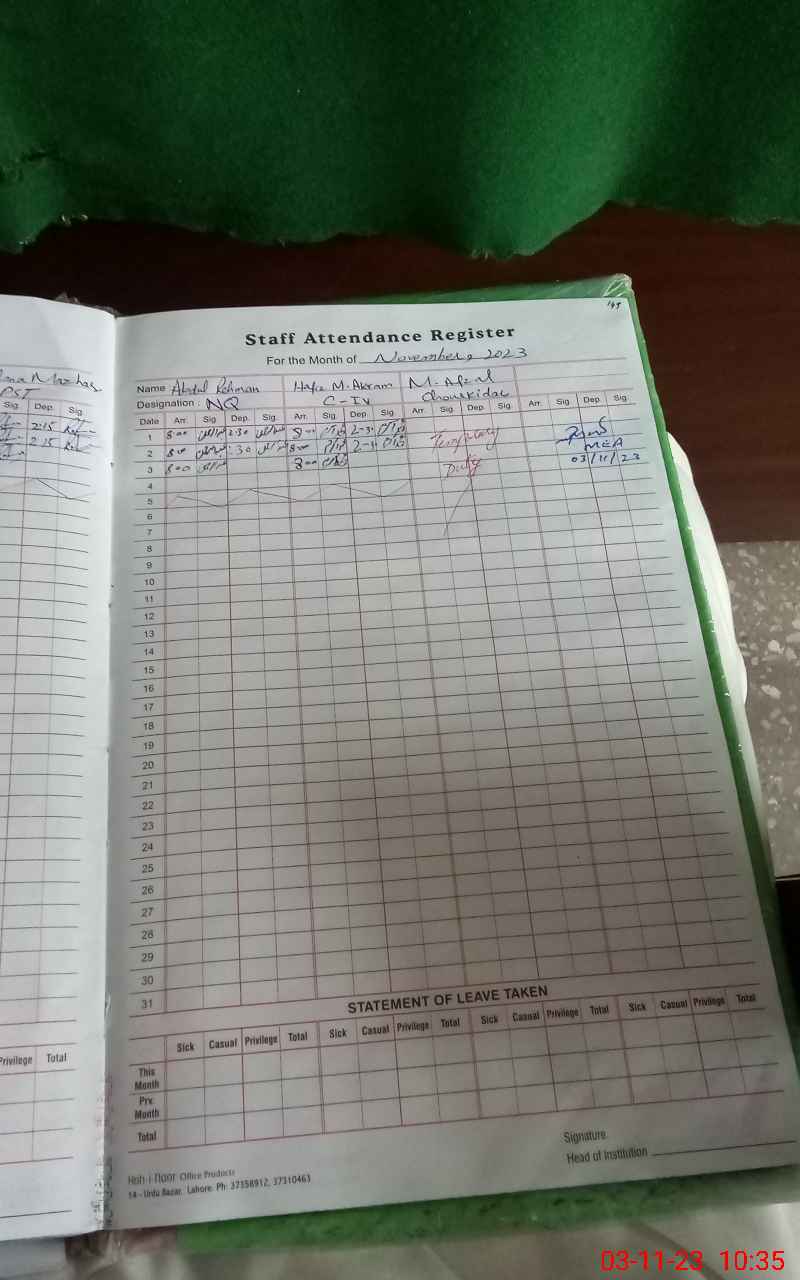 149
Staff Attendance Register
For the Month of November, 2023
Name Abdul Rehman Hafiz M. Akram M. Afzal
Designation : NQ C-IV Chowkidar
Date Arr. Sig. Dep. Sig. Arr. Sig. Dep. Sig. Arr. Sig. Dep. Sig. Arr. Sig. Dep. Sig.
1 8:00 2:30 8:00 2-30 Temporary
2 8:00 :30 8:00 2-30 MEA
3 8:00 8:00 Duty 03/11/23
4
5
6
7
8
9
10
11
12
13
14
15
16
17
18
19
20
21
22
23
24
25
26
27
28
29
30
31
STATEMENT OF LEAVE TAKEN
Sick Casual Privilege Total Sick Casual Privilege Total Sick Casual Privilege Total Sick Casual Privilege Total
This Month
Prv. Month
Total
Signature
Head of Institution
Koh-i-Noor Office Products
14 - Urdu Bazar, Lahore. Ph: 37358912, 37310463
PST
Sig. Dep. Sig.
2:15
2:15
Privilege Total
03-11-23 10:35